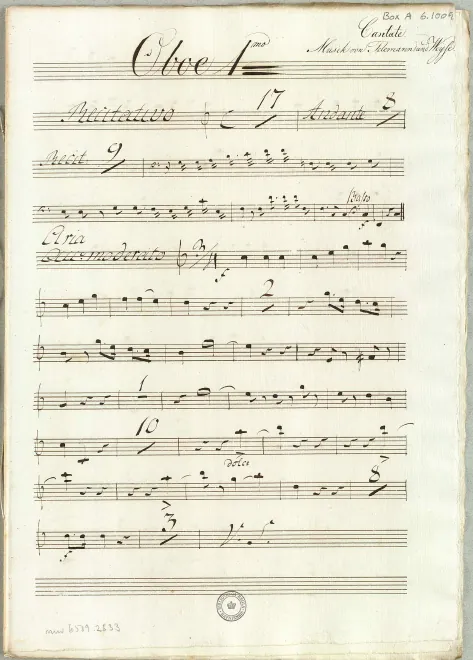 Box A 6.1009
Cantate
Musik von Telemann und Wyse
Oboe 1mo
Recitativo 17 Andante 8
Recit. 9
Aria
moderato 3/4
f
2
1
10
dolce
8
3
f
V. S.
mu 6509.2533